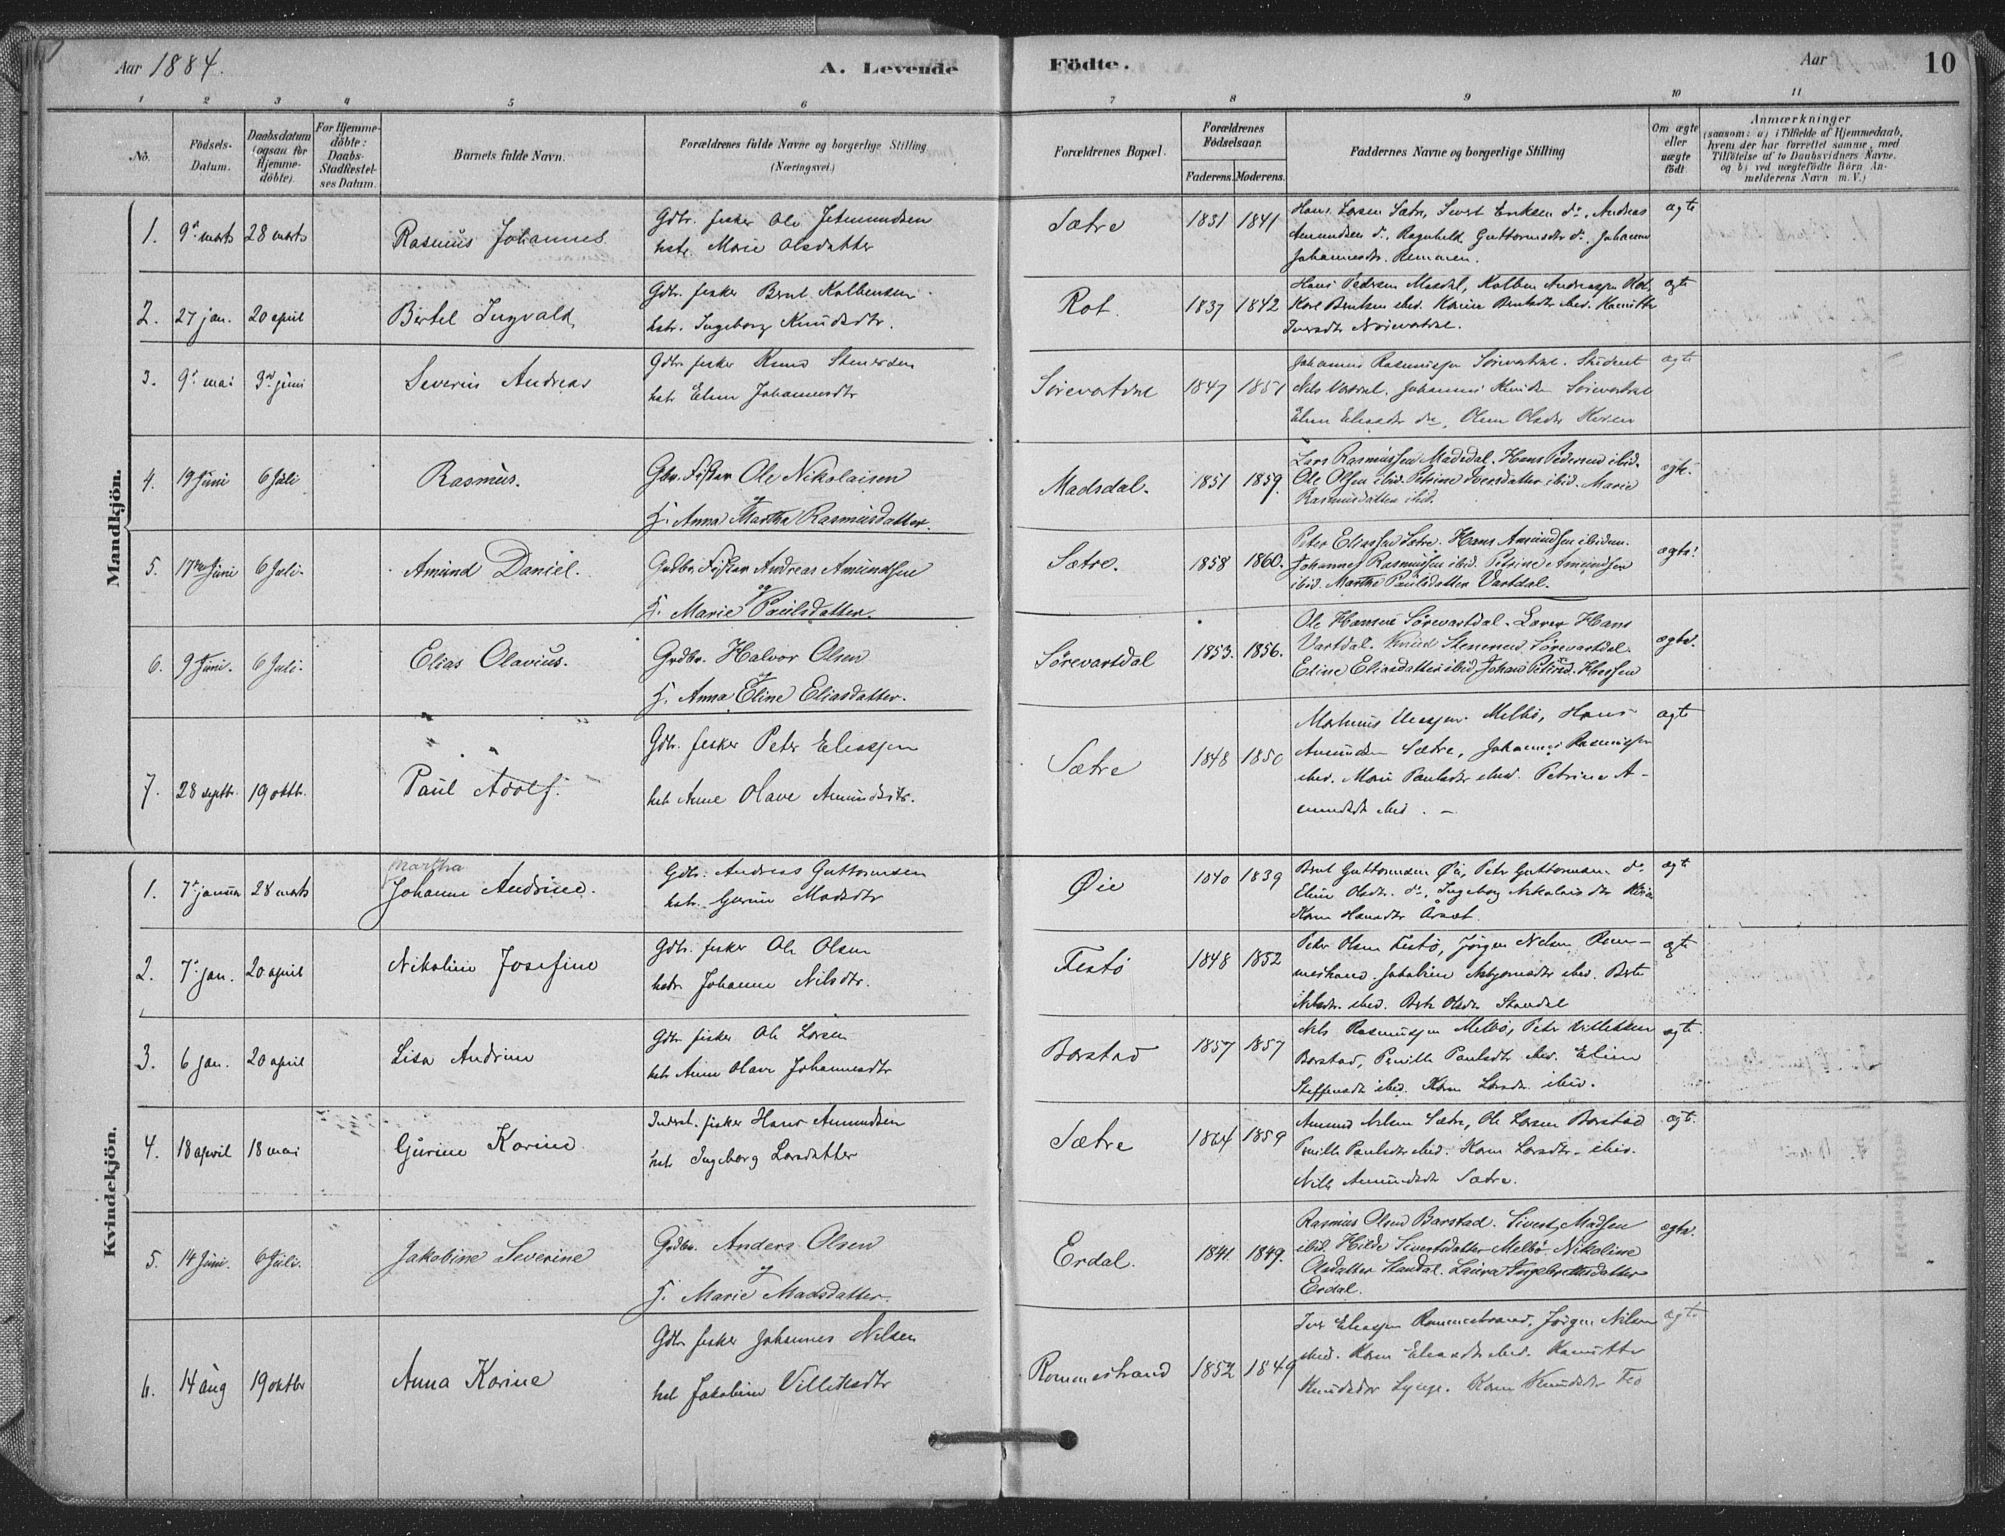 Aar 1884.
A. Levende
Födte.
Aar
10
1 2 3 4 5 6 7 8 9 10 11
No.
Födsels-Datum.
Daabsdatum (ogsaa for Hjemme-döbte).
For Hjemme-döbte: Daabs-Stadfæstel-ses Datum.
Barnets fulde Navn.
Forældrenes fulde Navne og borgerlige Stilling (Næringsvei.)
Forældrenes Bopæl.
Forældrenes Födselsaar.
Faderens. Moderens.
Faddernes Navne og borgerlige Stilling
Om ægte eller uægte födt
Anmærkninger
(saasom: a) i Tilfælde af Hjemmedaab,
hvem der har forrettet samme, med
Tilföielse af to Daabsvidners Navne.
og b) ved uægtefödte Börn An-
melderens Navn m. V.)
Mandkjön.
1. 9de marts 28 marts Rasmus Johannes
Gdbr. fisker Ole Jetmundsen
hstr Marie Olsdatter
Sætre 1831 1841
Hans Larsen Sætre, Sivert Eriksen do, Andreas
Amundsen do, Ragnhild Guttormsdtr do, Johanne
Johannesdtr. Remmen.
ægte
2. 27 jan. 20 april Bertel Ingvald
Gdbr. fisker Bernt Kolbensen
hstr. Ingeborg Knudsdtr.
Rot. 1837 1842
Hans Pedersen Masdal, Kolben Andreassen Rot,
Karl Berntsen ibid. Karine Berntsdtr ibid.
Iversdtr Nørevartdal.
ægte
3. 9de mai 3de juni Severin Andreas
Gdbr fisker Knud Stenersen
hstr Eline Johannesdtr
Sörevartdal 1847 1851
Johannes Rasmussen Sørevartdal. Student
Nils Vartdal. Johannes Knudsen Sørevartdal
Eline Eliasdtr do, Oline Olsdtr
ægte
4. 19 Juni 6 Juli Rasmus.
Gbr. Fisker Ole Nikolaisen
og
H. Anna Martha Rasmusdatter.
Madsdal. 1851 1859.
Lars Rasmussen Madsdal. Hans Pedersen ibid.
Ole Olsen ibid. Petrine Iversdatter ibid. Marie
Rasmusdatter ibid.
ægte.
5. 17de Juni 6 Juli. Amund Daniel.
Gadbr. Fisker Andreas Amundsen
og
H. Marie Paulsdatter.
Sætre. 1858 1860.
Peter Eliassen Sætre. Hans Amundsen ibidem.
Johannes Rasmussen ibid. Petrine Amundsen
ibid. Marthe Paulsdatter Vartdal.
ægte.
6. 9 Juni. 6 Juli. Elias Olavius.
Grdbr. Halvor Olsen
og
H. Anna Eline Eliasdatter.
Sørevartdal 1853. 1856.
Ole Hansen Sörevartdal. Lærer Hans
Vartdal. Knud Stenersen Sørevartdal.
Eline Eliasdatter ibid.
ægte.
7. 28 septbr. 19 oktbr. Paul Adolf.
Gdbr. fisker Peter Eliassen
hst Anne Olave Amundsdtr.
Sætre 1848 1850
Martinus Eliassen Melbö, Hans
Amundsen Sætre, Johannes Rasmussen
ibid. Marie Paulsdtr ibid. Petrine A-
mundsdtr ibid. -
ægte
Kvindekjön.
1. 7de januar 28 marts Martha
Johanne Andrine.
Gdbr. Andreas Guttormsen
hstr. Gurine Madsdtr
Øie 1840 1839
Bernt Guttormsen Øie, Peter Guttormsen do
Eline Olsdtr. do, Ingeborg Nikolaisdtr
Karn Hansdtr Aarset.
ægte
2. 7de jan. 20 april Nikoline Josefine
Gdbr. fisker Ole Olsen
hstr. Johanne Nilsdtr.
Festö 1848 1852
Peter Olsen Festö, Jörgen Nilsen Rom-
mestrand. Jakobine Asbjørnsdtr ibid. Berte
Nilsdtr. ibid. Berte Olsdtr Standal
ægte
3. 6 jan. 20 april Lisa Andrine
Gdbr fisker Ole Larsen
hstr Anne Olave Johannesdtr
Barstad 1857 1857
Nils Rasmussen Melbö, Peter Villiksen
Barstad, Pernille Paulsdtr ibid. Eline
Steffensdtr ibid. Karn Larsdtr. ibid.
ægte.
4. 18 april 18 mai Gurine Karine
Inderst. fisker Hans Amundsen
hstr Ingeborg Larsdatter
Sætre 1864 1859
Amund Nilsen Sætre, Ole Larsen Barstad
Pernille Paulsdtr ibid. Karn Larsdtr. ibid.
Nille Amundsdtr Sætre.
ægte.
5. 14 Juni. 6 Juli. Jakobine Severine
Grdbr. Anders Olsen
og
H. Marie Madsdatter.
Erdal. 1841. 1849.
Rasmus Olsen Barstad. Sivert Madsen
ibid. Hilde Sivertsdatter Melbö. Nikoline
Olsdatter Standal. Laura Ingebretsdatter
Erdal.
ægte.
6. 14 aug 19 oktbr Anna Karine
Gdbr fisker Johannes Nilsen
hst Jakobine Villiksdtr
Rommestrand 1852 1849
Iver Eliassen Rommestrand, Jörgen Nilsen
ibid. Karn Eliasdtr ibid.
Knudsdtr Lynge. Karn Knudsdtr
ægte